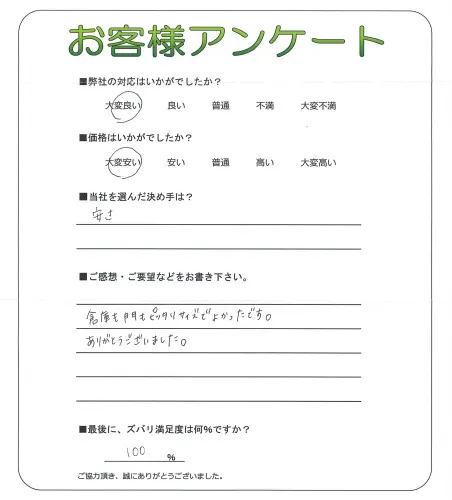 お客様アンケート
■弊社の対応はいかがでしたか？
大変良い 良い 普通 不満 大変不満
■価格はいかがでしたか？
大変安い 安い 普通 高い 大変高い
■当社を選んだ決め手は？
安さ
■ご感想・ご要望などをお書き下さい。
倉庫も門もピッタリサイズでよかったです。
ありがとうございました。
■最後に、ズバリ満足度は何%ですか？
100 %
ご協力頂き、誠にありがとうございました。